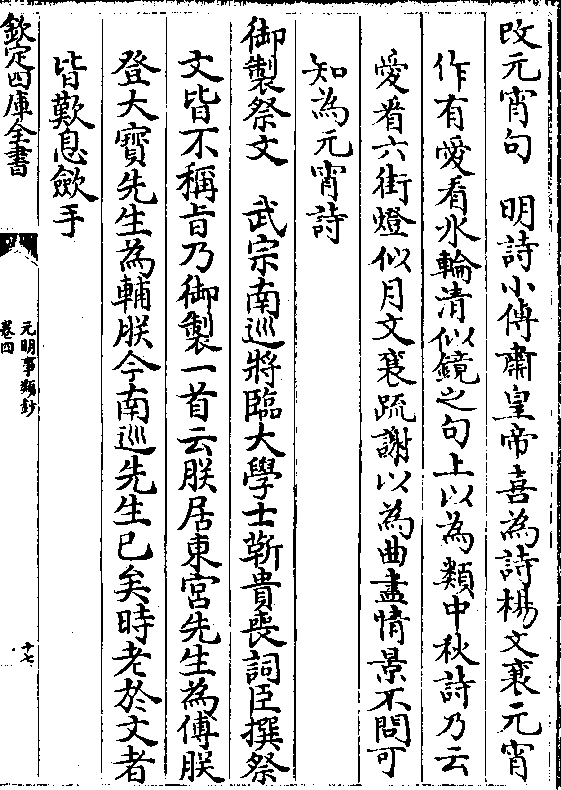 改元宵句　明詩小傳肅皇帝喜為詩楊文襄元宵
作有愛看氷輪清似鏡之句上以為類中秋詩乃云
愛看六街燈似月文襄疏謝以為曲盡情景不問可
知為元宵詩
御製祭文　武宗南巡將臨大學士靳貴喪詞臣撰祭
文皆不稱旨乃御製一首云朕居東宮先生為傅朕
登大寳先生為輔朕今南巡先生已矣時老於文者
皆歎息歛手
欽定四庫全書
元明事類鈔
卷四
十七